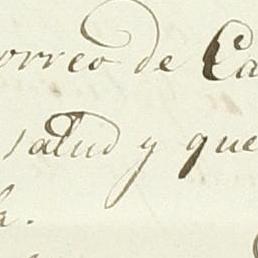 orreo de Ca
salud y que
la.